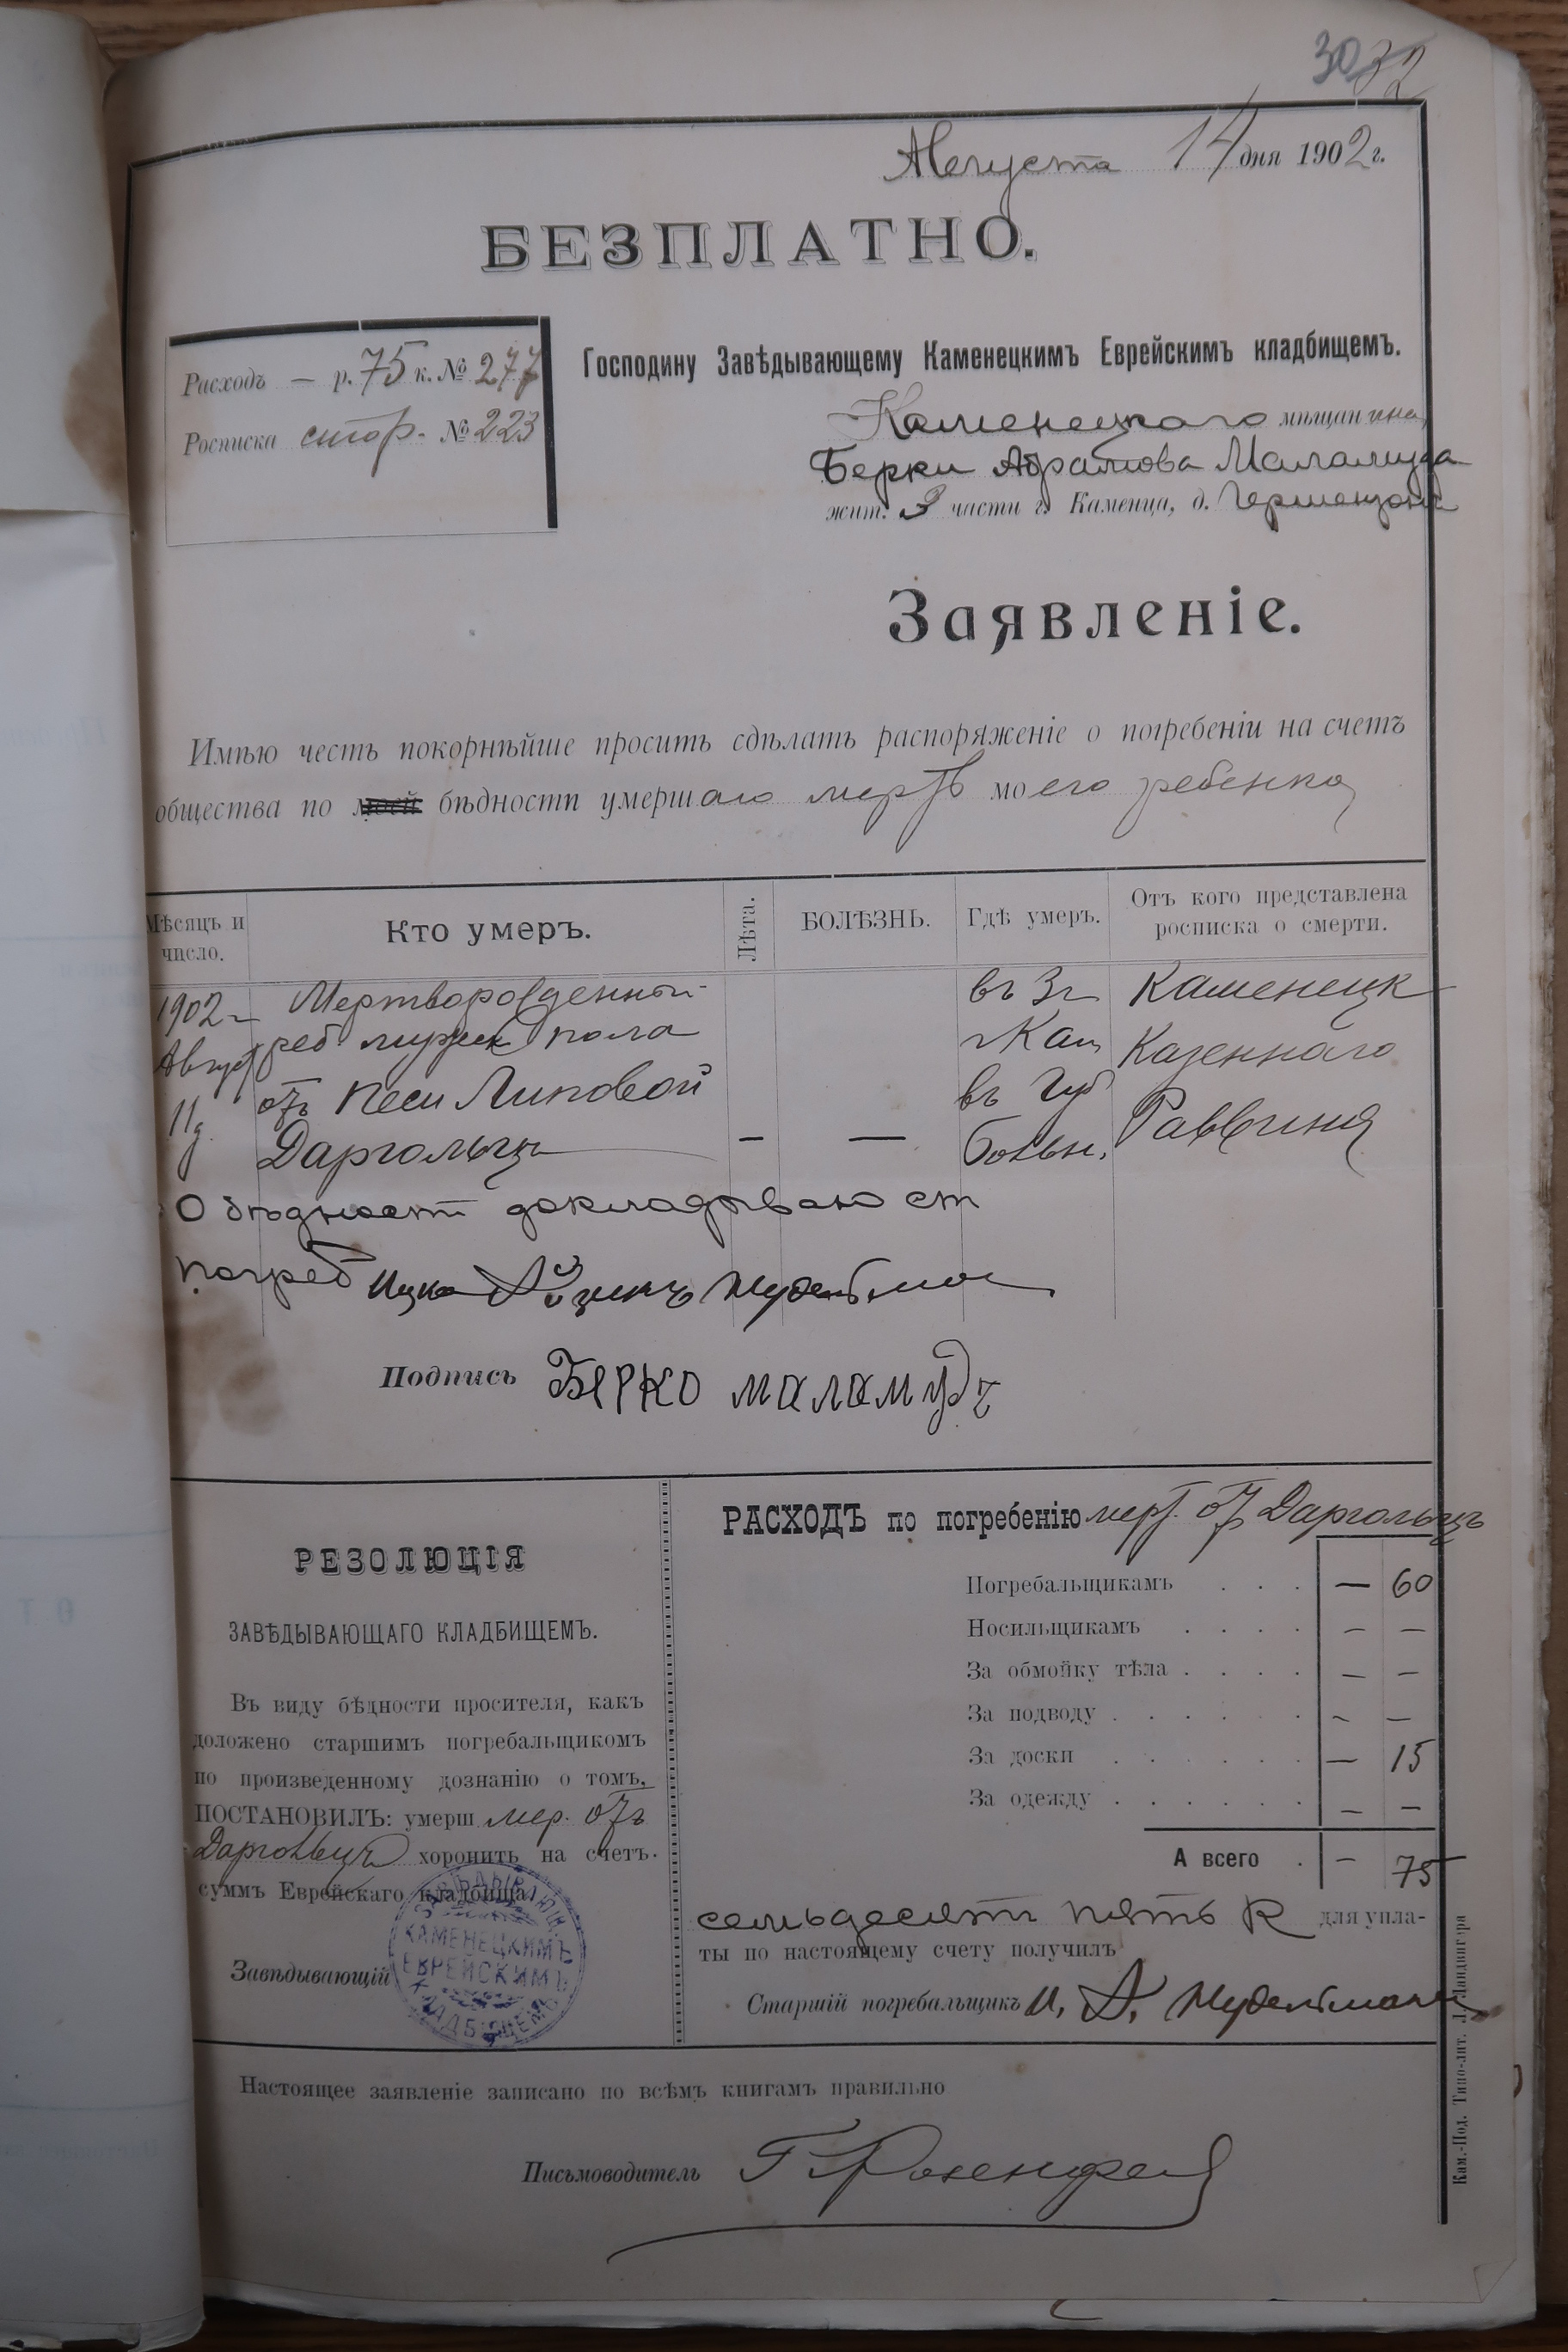 30 32
Августа 14 дня 1902 г.
БЕЗПЛАТНО.
Расходъ — р. 75 к. № 277
Росписка стор. № 223
Господину Завѣдывающему Каменецкимъ Еврейскимъ кладбищемъ.
Каменецкаго мѣщанина
Берки Абрамова Маламуда
жит. 3 части г. Каменца, д. Гершензона
Заявленіе.
Имѣю честь покорнѣйше просить сдѣлать распоряженіе о погребеніи на счетъ
общества по моей бѣдности умершаго мертв моего ребенка
Мѣсяцъ и число.
Кто умеръ.
Лѣта.
БОЛѢЗНЬ.
Гдѣ умеръ.
Отъ кого представлена росписка о смерти.
1902 г. Мертворожденный въ 3 ч. Каменецк
Август реб. мужск пола г Кам Казеннаго
11 д. отъ Песи Липовой въ Губ Раввина
Даргольцъ — — больн.
О бѣдности докладываю ст
погреб Ицко Айзикъ Нудельман
Подпись Берко маламудъ
РЕЗОЛЮЦІЯ
ЗАВѢДЫВАЮЩАГО КЛАДБИЩЕМЪ.
Въ виду бѣдности просителя, какъ
доложено старшимъ погребальщикомъ
по произведенному дознанію о томъ,
ПОСТАНОВИЛЪ: умерш мер. отъ
Даргольцъ хоронить на счетъ
суммъ Еврейскаго кладбища.
Завѣдывающій
ЗАВѢДЫВАЮЩ. КАМЕНЕЦКИМЪ ЕВРЕЙСКИМЪ КЛАДБИЩЕМЪ
РАСХОДЪ по погребенію мерт. от Даргольцъ
Погребальщикамъ . . . — 60
Носильщикамъ . . . . — —
За обмойку тѣла . . . . — —
За подводу . . . . . . — —
За доски . . . . . . — 15
За одежду . . . . . . — —
А всего . — 75
семьдесять пять К для упла-
ты по настоящему счету получилъ
Старшій погребальщикъ И. А. Нудельманъ
Настоящее заявленіе записано по всѣмъ книгамъ правильно
Письмоводитель Г Розенфельд
Кам.-Под. Типо-лит. Л. Ландвигера